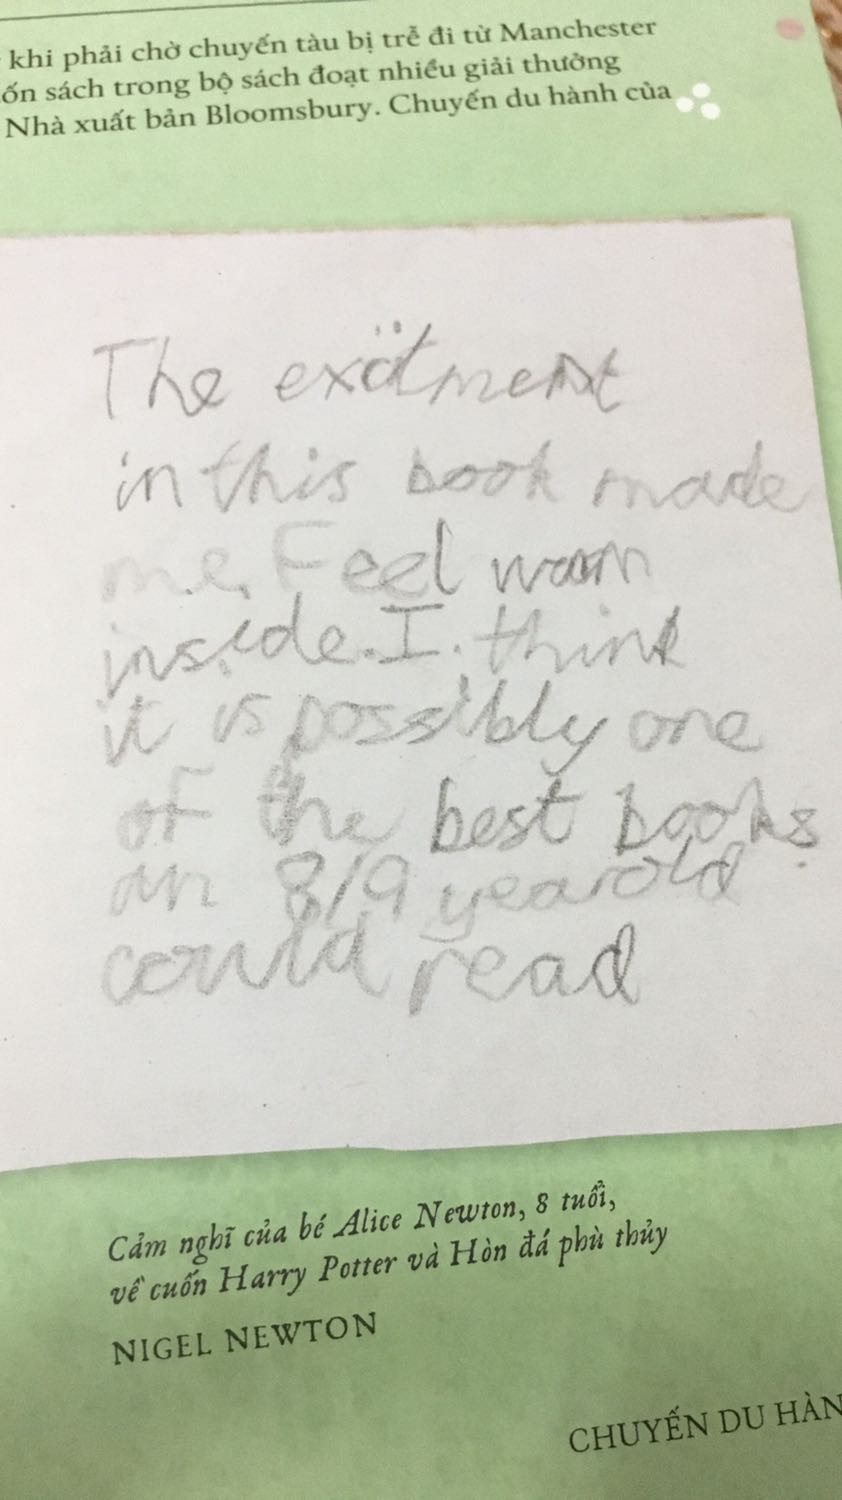 khi phải chờ chuyến tàu bị trễ đi từ Manchester
ốn sách trong bộ sách đoạt nhiều giải thưởng
Nhà xuất bản Bloomsbury. Chuyến du hành của
The exitment
in this book made
me Feel warm
inside. I think
it is possibly one
oF the best books
an 8/9 year old
could read
Cảm nghĩ của bé Alice Newton, 8 tuổi,
về cuốn Harry Potter và Hòn đá phù thủy
NIGEL NEWTON
CHUYẾN DU HÀN